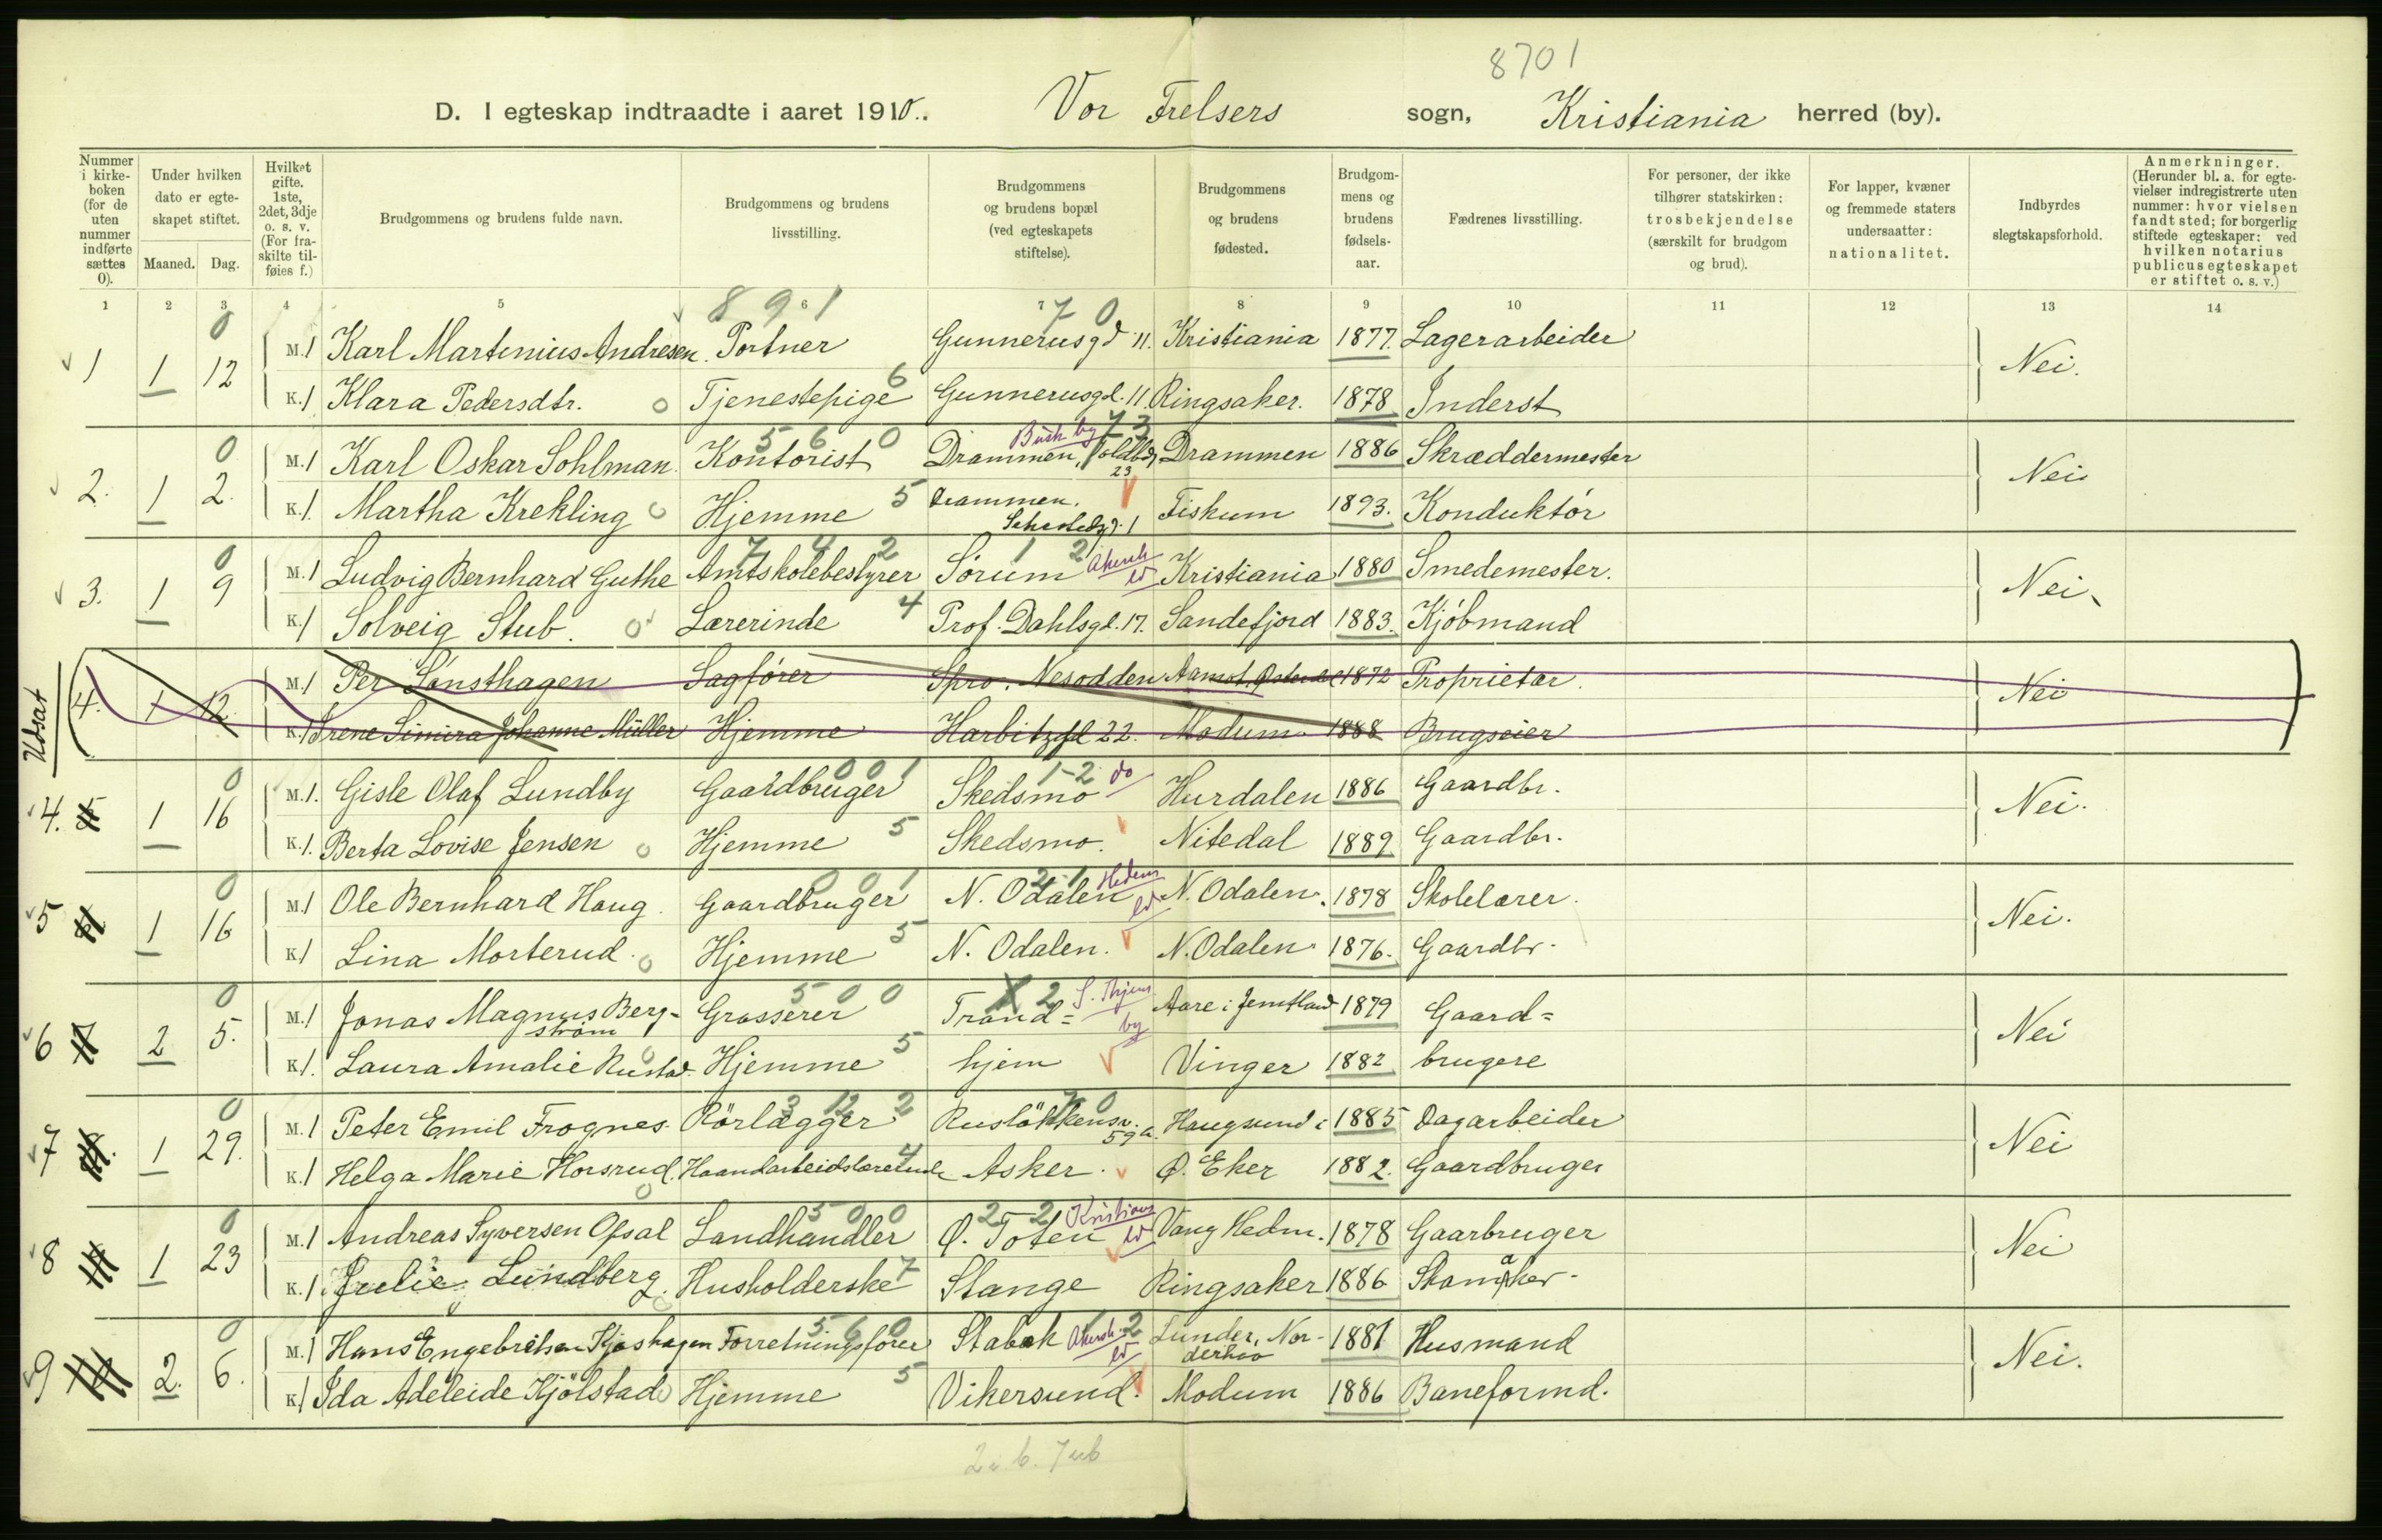 8701
D. I egteskap indtraadte i aaret 1910. Vor Frelsers sogn, Kristiania herred (by).
Nummer i kirke-boken (for de uten nummer indførte sættes 0).
Under hvilken dato er egte-skapet stiftet.
Maaned. Dag.
Hvilket gifte. 1ste, 2det, 3dje o. s. v. (For fra-skilte til-føies f.)
Brudgommens og brudens fulde navn.
Brudgommens og brudens livsstilling.
Brudgommens og brudens bopæl (ved egteskapets stiftelse).
Brudgommens og brudens fødested.
Brudgom-mens og brudens fødsels-aar.
Fædrenes livsstilling.
For personer, der ikke tilhører statskirken: trosbekjendelse (særskilt for brudgom og brud).
For lapper, kvæner og fremmede staters undersaatter: nationalitet.
Indbyrdes slegtskapsforhold.
Anmerkninger. (Herunder bl. a. for egte-vielser indregistrerte uten nummer: hvor vielsen fandt sted; for borgerlig stiftede egteskaper: ved hvilken notarius publicus egteskapet er stiftet o. s. v.)
1 2 3 4 5 6 7 8 9 10 11 12 13 14
0 891 70
1 1 12 M. 1 Karl Martinius Andresen. Portner Gunnerusgd 11. Kristiania 1877. Lagerarbeider Nei.
K. 1 Klara Pedersdtr. 0 Tjenestepige 6 Gunnerusgd. 11. Ringsaker. 1878 Inderst
0 560 Busk by 73
2. 1 2. M. 1 Karl Oskar Sohlman. Kontorist Drammen, Toldbg 23 Drammen 1886 Skræddermester Nei
K. 1. Martha Krekling 0 Hjemme 5 Drammen. Fiskum 1893. Konduktör
0 742 12 Akersh ld
3. 1 9 M. 1 Ludvig Bernhard Guthe Amtskolebestyrer Sørum Kristiania 1880 Smedemester. Nei.
K. 1 Solveig Stub. 0 Lærerinde 4 Prof. Dahlsgd. 17. Sandefjord 1883. Kjöbmand
Udsat
4. 1 12 M. 1 Per Sönsthagen Sagförer Spro, Nesodden Aamot, Österdal 1872 Proprietær. Nei
K. 1 Irene Simira Johanne Müller Hjemme Harbitzgd 22. Modum 1888 Brugseier
0 001 1-2 do
4. 5 1 16 M. 1. Gisle Olaf Lundby Gaardbruger Skedsmo Hurdalen 1886 Gaardbr. Nei.
K. 1. Berta Lovise Jensen 0 Hjemme 5 Skedsmo. Nitedal 1889 Gaardbr.
0 001 2-1 Hedem ld
5 6 1 16 M. 1 Ole Bernhard Haug. Gaardbruger N. Odalen N. Odalen. 1878 Skolelærer. Nei.
K 1 Lina Morterud. 0 Hjemme 5 N. Odalen. N. Odalen 1876. Gaardbr.
0 500 X 2 S. Thjem by
6 7 2 5. M. 1 Jonas Magnus Berg-ström Grosserer Trond= Aare i Jemtland 1879 Gaard= Nei
K 1. Laura Amalie Rustad. 0 Hjemme 5 hjem Vinger 1882 brugere
0 3 12 2 70
7 8. 1 29. M. 1 Peter Emil Frognes. Rörlægger Euslökkensv. 59 a. Haugsund i 1885 Dagarbeider Nei
K. 1 Helga Marie Horsrud. 0 Haandarbeidslærerinde 4 Asker. Ö. Eker 1882. Gaardbruger
0 500 2 2 Kristians ld
8 1 23 M. 1 Andreas Syversen Ofsal Landhandler Ö. Toten Vang Hedm. 1878 Gaarbruger Nei
K. 1 Julie Lundberg. 0 Husholderske 7 Stange Ringsaker 1886
0 560 1-2 Akersh. ld
9 2. 6. M. 1 Hans Engebretsen Kjoshagen Forretningsfører Stabæk Lunder, Nor-derhov 1881 Husmand Nei.
K 1 Ida Adeleide Kjölstad 0 Hjemme 5 Vikersund. Modum 1886 Baneformd.